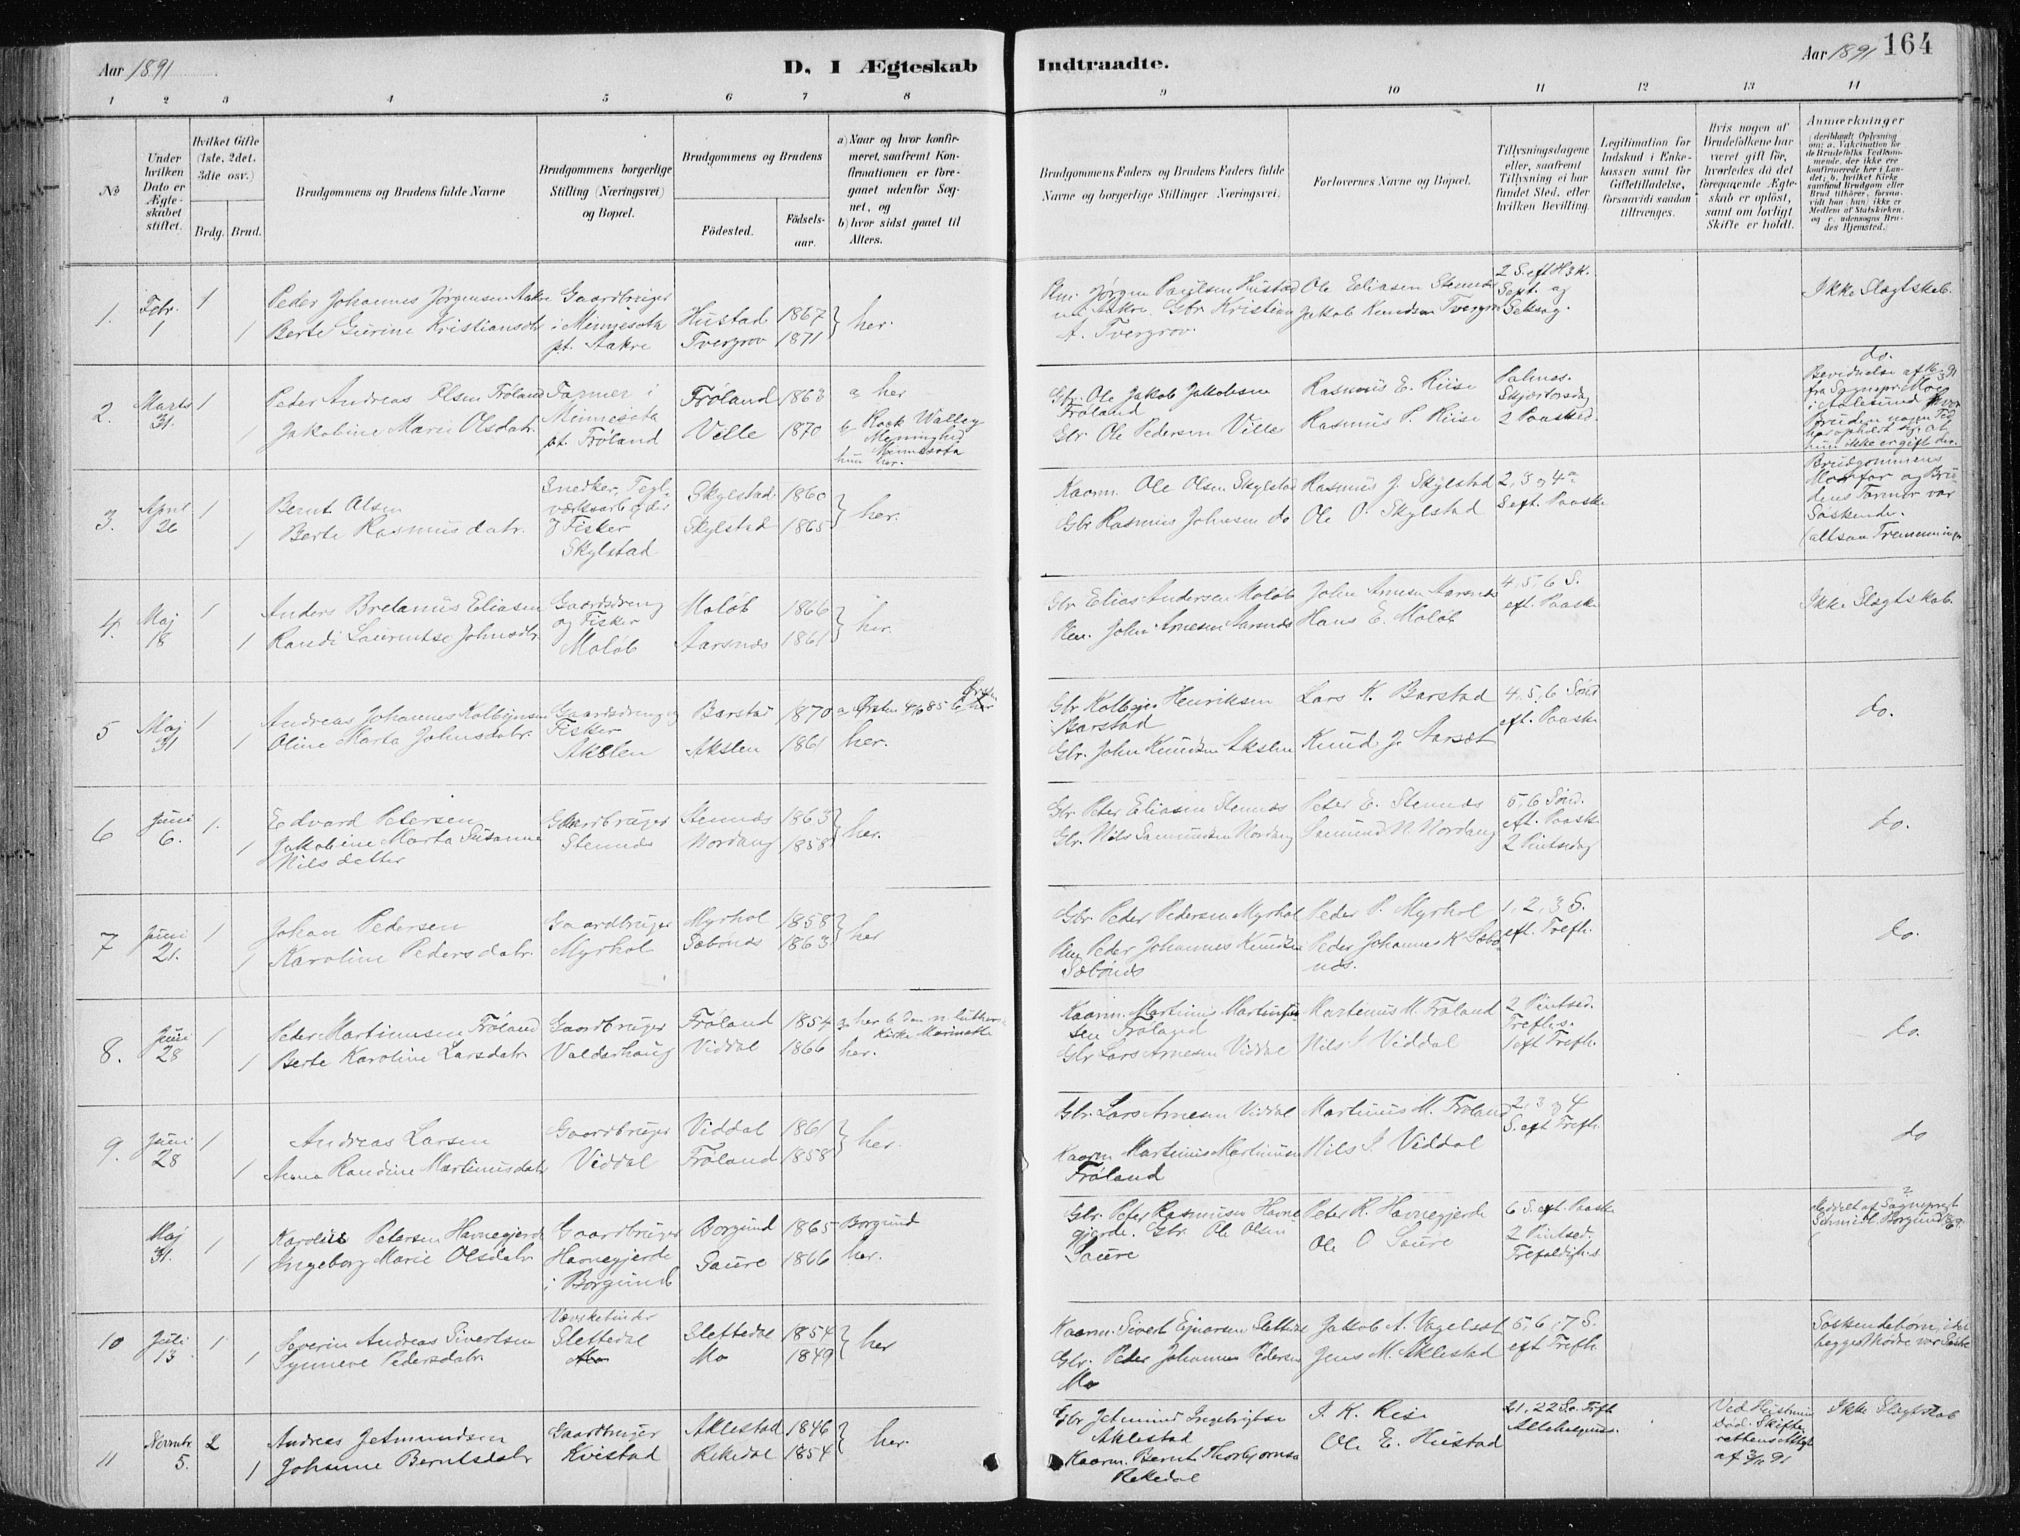 Aar 1891
D. I Ægteskab
Indtraadte.
Aar 1891
164
1 2 3 4 5 6 7 8 9 10 11 12 13 14
No
Under hvilken Dato er Ægteskabet stiftet.
Hvilket Gifte (1ste, 2det, 3die osv.)
Brdg. Brud.
Brudgommens og Brudens fulde Navne
Brudgommens borgerlige Stilling (Næringsvei) og Bopæl.
Brudgommens og Brudens
Födested.
Födselsaar.
a) Naar og hvor konfirmeret, saafremt Konfirmationen er foregaaet udenfor Sognet, og
b) hvor sidst gaaet til Alters.
Brudgommens Faders og Brudens Faders fulde Navne og borgerlige Stillinger Næringsvei.
Forlovernes Navne og Bopæl.
Tillysningsdagene eller, saafremt Tillysning ei har fundet Sted, efter hvilken Bevilling
Legitimation for Indskud i Enkekassen samt for Giftetilladelse, forsaavidt saadan tiltrænges.
Hvis nogen af Brudefolkene har været gift för, hvorledes da det foregaaende Ægteskab er oplöst, samt om lovligt Skifte er holdt.
Anmærkninger
1. Febr. 1 1 1
Peder Johannes Jørgensen Aakre
Berte Gurine Kristiansdtr.
Gaardbruger i Minnesota pt. Aakre
Hustad 1867
Tvergrov 1871
her.
Jørgen Paulsen Hustad
Aakre. Gbr Kristian A. Tvergrov.
Ole Eliasen Stennæs
Jakob Knudsen Tvergrov
Ikke Slægtskab.
2. Marts 31. 1 1
Peder Andreas Olsen Frøland
Jakobine Marie Olsdatr.
Farmer i Minnesota pt. Frøland
Frøland 1863
Velle 1870
a her
b Rock Walley Menninghed Minnesota
hun her.
Gbr. Ole Jakob Jakobsen Frøland
Gbr Ole Pedersen Ville
Rasmus E. Riise
Rasmus P. Riise
Palmes. Skjærtorsdag 2 Paasked.
do.
3. April 26 1 1
Bernt Olsen
Berte Rasmusdatr.
Snedker, Teglværksarbejder & Fisker Skylstad
Skylstad 1860
Skylstad 1865
her.
Kaarm. Ole Olsen Skylstad
Gbr Rasmus Johnsen do
Rasmus J. Skylstad
Ole O. Skylstad
2, 3 og 4de S. eft. Paaske
Brudgommens Morfar og Brudens Farmor var Søskende. (altsaa Tremenninger
4. Maj 18 1 1
Anders Bretanus Eliasen
Randi Laurentse Johnsdtr.
Gaardsdreng og Fisker Moløb
Moløb 1866
Aarsnæs 1861
her.
Gbr Elias Andersen Moløb
John Arnesen Aarsnæs
John Arnesen Aarsnæs
Hans E. Moløb
4, 5, 6 S. eft. Paaske
Ikke Slægtskab.
5 Maj 31 1 1
Andreas Johannes Kolbejnsen
Oline Marta Johnsdatr.
Gaardsdreng og Fisker Akslen
Barstad 1870
Akslen 1861
a Ørsten 4/10 85 b Ørsten
her.
Gbr Kolbejn Henriksen Barstad
Gbr. John Knudsen Akslen
Lars K. Barstad
Knud J. Aarsæt
4, 5, 6 Sønd eft. Paaske
do.
6 Juni 6. 1. 1
Edvard Petersen
Jakobine Marta Susanna Nilsdatter
Gaardbruger Stennæs
Stennæs 1863
Nordang 1858
her.
Gbr Peter Eliasen Stennæs
Gbr. Nils Samundsen Nordang
Peter E. Stennæs
Samund N. Nordang
5, 6 Sønd. eft. Paaske 2 Pintsedag
do.
7 Juni 21. 1 1
Johan Pedersen
Karoline Pedersdatr.
Gaardbruger Myrhol
Myrhol 1858
Sæbønæs 1863
her
Gbr. Peder Pedersen Myrhol
Peder Johannes Knudsen Sæbönæs
Peder P. Myrhol
Peder Johannes K Sæbønæs.
1, 2, 3 S. eft. Trefh.
do.
8. Juni 28 1 1
Peder Martinussen Frøland
Berte Karoline Larsdatr.
Gaardbruger Valderhaug
Frøland 1854
Viddal 1866
her b den n. luthers. Kirke Marinette
her.
Kaarm. Martinus Martinussen Frøland
Gbr Lars Arnesen Viddal
Martinus M. Frøland
Nils I Viddal
2 Pintsed. Trefh.s. 1 eft Trefh.
do.
9. Juni 28 1 1
Andreas Larsen
Anna Randine Martinusdatr
Gaardbruger Viddal
Viddal 1861
Frøland 1858
her.
Gbr. Lars Arnesen Viddal
Kaarm Martinus Martinussen Frøland
Martinus M. Frøland
Nils I. Viddal
2, 3 og 4 S. eft Trefh.
do
Maj 31. 1 1
Karolius Petersen Havnegjerde
Ingeborg Marie Olsdatr.
Gaardbruger Havnegjerde i Borgund
Borgund 1865
Saure 1866
Borgund
her.
Gbr. Peter Rasmusen Havnegjerde. Gbr Ole Olsen Saure
Peter R. Havnegjerde
Ole O Saure
6 S. eft. Paaske 2 Pintsed. Trefoldigh.s.
10 Juli 13. 1 1
Severin Andreas Sivertsen
Synneve Pedersdatr.
Vævskebinder Slettedal
Mo
Slettedal 1854
Mo 1849
her
Kaarm. Sivert Ejnarsen Slettedal
Gbr. Peder Johannes Pedersen Mo
Jakob A. Vogelsæt
Jens M. Aklestad
5, 6, 7 S. eft Trefh.
11 Novmbr 5. 2 1
Andreas Jetmundsen
Johanne Berntsdatr
Gaardbruger Kvistad
Aklestad 1846
Rekedal 1854
her.
Gbr Jetmund Ingebrigtsen Aklestad
Kaarm. Bernt Thorbjørnsen Rekedal
I. K. Rise
Ole E. Hustad
21, 22 S. Trefh Allehelgens.
Ved Hustruens Død. Skifterettens Attest af 3/11 91
Ikke Slægtskab